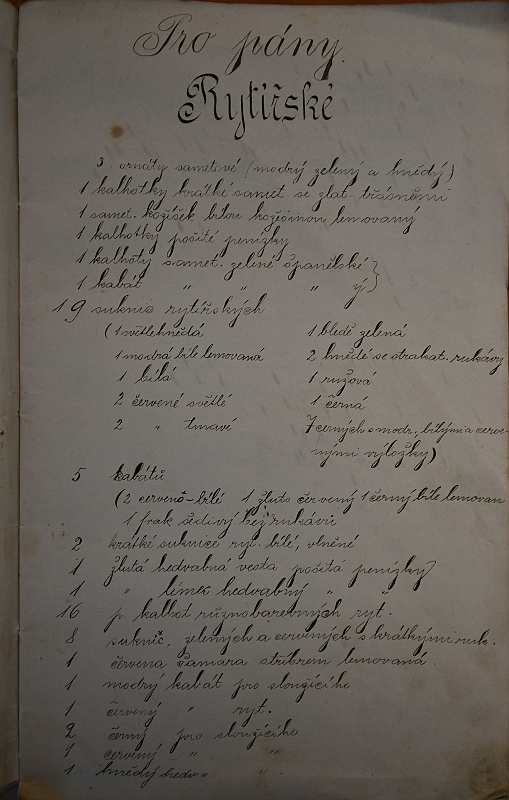 Pro pány.
Rytířské
3 ornáty sametové (modrý zelený a hnědý)
1 kalhotky krátké samet se zlat. třásněmi
1 samet. kožíšek bílou kožešinou lemovaný
1 kalhotky pošité penízky
1 kalhoty samet. zelené španělské }
1 kabát " " " ý }
19 suknic rytířských
(1 světlehnědá 1 bledě zelená
1 modrá bíle lemovaná 2 hnědé se strakat. rukávy
1 bílá 1 růžová
2 červené světlé 1 černá
2 " tmavé 7 černých s modr., bílými a červe-
nými výložky)
5 kabátů
(2 červeno-bílé 1 žluto červený 1 černý bíle lemovan
1 frak šedivý bez rukávů
2 krátké suknice ryt. bílé, vlněné
1 žlutá hedvabná vesta pošitá penízky
1 " límec hedvabný " "
16 p. kalhot různobarebných ryt.
8 suknič. zelených a červených s krátkými ruk.
1 červena čamara stříbrem lemovaná.
1 modrý kabát pro sloužícího
1 červený " ryt.
2 černý pro sloužícího
1 červený " "
1 hnědý hedv. " "